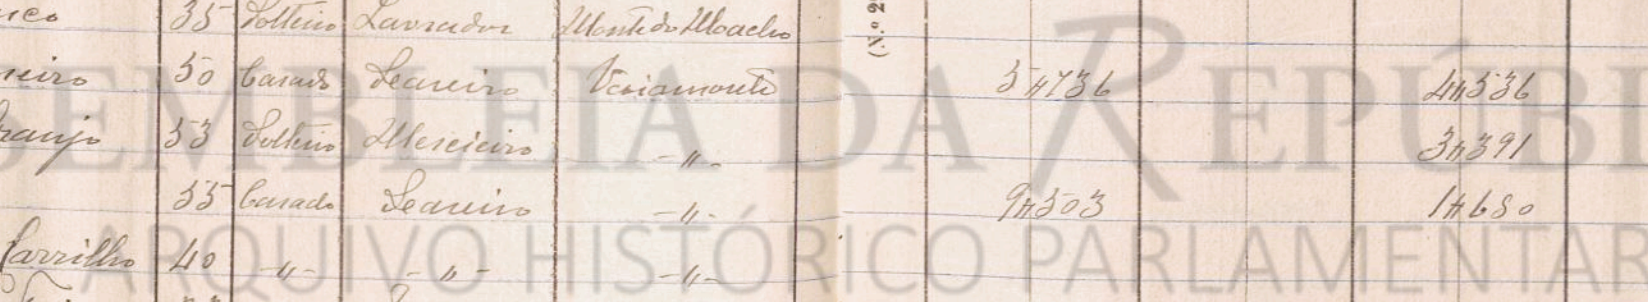 35 Solteiro Lavrador Monte do Macho (N.º 2
50 Casado Seareiro Vaiamonte 5$736 4$536
53 Solteiro Merceeiro -"- 3$391
55 Casado Seareiro -"- 9$503 1$680
Carrilho 40 -"- -"- -"-
ASSEMBLEIA DA REPÚBLI
ARQUIVO HISTÓRICO PARLAMENTAR